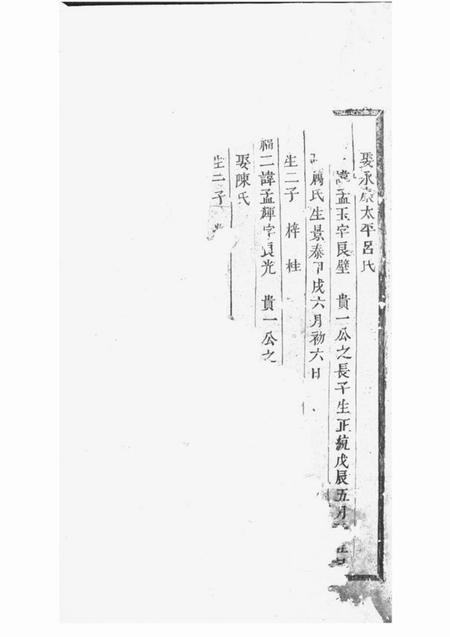 娶永康太平呂氏
諱孟玉字良璧 貴一公之長子生正統戊辰五月
氏生景泰甲戌六月初六日
生二子 梓 桂
福二諱孟輝字良光 貴一公之
娶陳氏
生二子